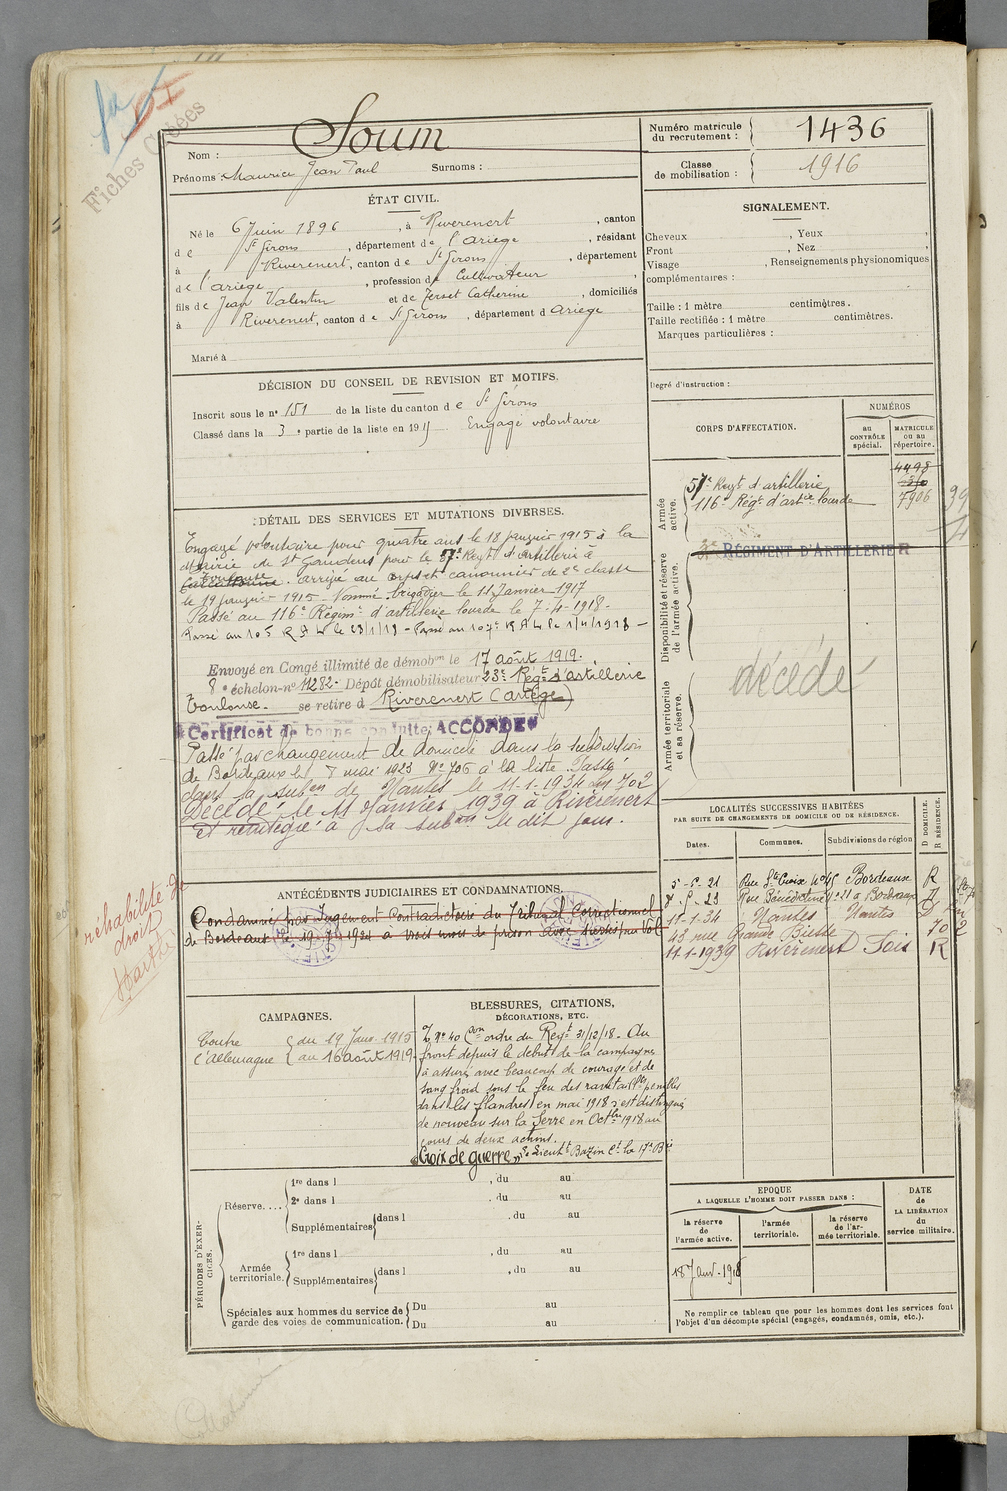 Fiches Créées
Nom : Soum
Prénoms : Maurice Jean Paul Surnoms :
Numéro matricule du recrutement : 1436
Classe de mobilisation : 1916
ÉTAT CIVIL.
Né le 6 Juin 1896, à Riverenert, canton
de St Girons, département de l'Ariège, résidant
à Riverenert, canton de St Girons, département
de l'ariège, profession de Cultivateur,
fils de Jean Valentin et de Terset Catherine, domiciliés
à Riverenert, canton de St Girons, département d Ariège
Marié à
SIGNALEMENT.
Cheveux , Yeux ,
Front , Nez ,
Visage , Renseignements physionomiques
complémentaires :
Taille : 1 mètre centimètres.
Taille rectifiée : 1 mètre centimètres.
Marques particulières :
Degré d'instruction :
DÉCISION DU CONSEIL DE REVISION ET MOTIFS.
Inscrit sous le n° 151 de la liste du canton de St Girons
Classé dans la 3e partie de la liste en 19 15 Engagé volontaire
CORPS D'AFFECTATION.
NUMÉROS
au CONTRÔLE spécial.
MATRICULE ou au répertoire.
Armée active.
57e Regt d'artillerie 4498
116e Régt d'artie lourde 7906
Disponibilité et réserve de l'armée active.
RÉGIMENT D'ARTILLERIE
Armée territoriale et sa réserve.
décédé
DÉTAIL DES SERVICES ET MUTATIONS DIVERSES.
Engagé volontaire pour quatre ans le 18 janvier 1915 à la
Mairie de St Gaudens pour le 57e Regt d'Artillerie à
Carcassonne Toulouse. arrivé au corps et canonnier de 2e classe
le 19 janvier 1915. Nommé brigadier le 11 Janvier 1917
Passé au 116e Régimt d'artillerie lourde le 7-4-1918.
Passé au 105 R A L le 23/1/18 - Passé au 107e R A L le 1/4/1918 -
Envoyé en Congé illimité de démobon le 17 août 1919.
8e échelon-n° 11282. Dépôt démobilisateur 23e Régt d'artillerie
Toulouse. se retire à Riverenert (Ariège)
Certificat de bonne conduite ACCORDÉ
Passé par changement de domicile dans la subdivision
de Bordeaux le 8 mai 1923 N° 706 à la liste. Passé
dans la subon de Nantes le 11-1-1934 702
Décédé le 11 Janvier 1939 à Riverenert
et réintégré à sa subon le dit jour.
LOCALITÉS SUCCESSIVES HABITÉES
PAR SUITE DE CHANGEMENTS DE DOMICILE OU DE RÉSIDENCE.
Dates. Communes. Subdivisions de région D DOMICILE. R RÉSIDENCE.
5-5-21 Rue Ste Croix N° 45 Bordeaux R
Rue Bénédictine N° 21 à Bordeaux D
11-1-34 Nantes Nantes D
43 rue Grande Biesse
11-1-1939 Riverenert Foix R
ANTÉCÉDENTS JUDICIAIRES ET CONDAMNATIONS.
Condamné par Jugement Contradictoire du Tribunal Correctionnel
de Bordeaux le 1921 à trois mois de prison avec sursis pour Vol
réhabilité de
droit
CAMPAGNES.
Contre l'Allemagne { du 19 Janv. 1915
au 16 août 1919.
BLESSURES, CITATIONS,
DÉCORATIONS, ETC.
C. N° 40 ordre du Regt 31/12/18. Au
front depuis le début de la campagne
a assuré avec beaucoup de courage et de
sang froid sous le feu des ravitaillts pénibles
dans les flandres en mai 1918 s'est distingué
de nouveau sur la Serre en Octbre 1918 au
cours de deux actions.
"Croix de guerre" Lieutt Bazin Ct la 17e Bie
PÉRIODES D'EXERCICES.
Réserve....
1re dans l , du au
2e dans l , du au
Supplémentaires dans l , du au
Armée territoriale.
1re dans l , du au
Supplémentaires dans l , du au
Spéciales aux hommes du service de garde des voies de communication.
Du au
Du au
EPOQUE
A LAQUELLE L'HOMME DOIT PASSER DANS :
la réserve de l'armée active.
l'armée territoriale.
la réserve de l'armée territoriale.
DATE de LA LIBÉRATION du service militaire.
18 Janv. 1918
Ne remplir ce tableau que pour les hommes dont les services font
l'objet d'un décompte spécial (engagés, condamnés, omis, etc.).